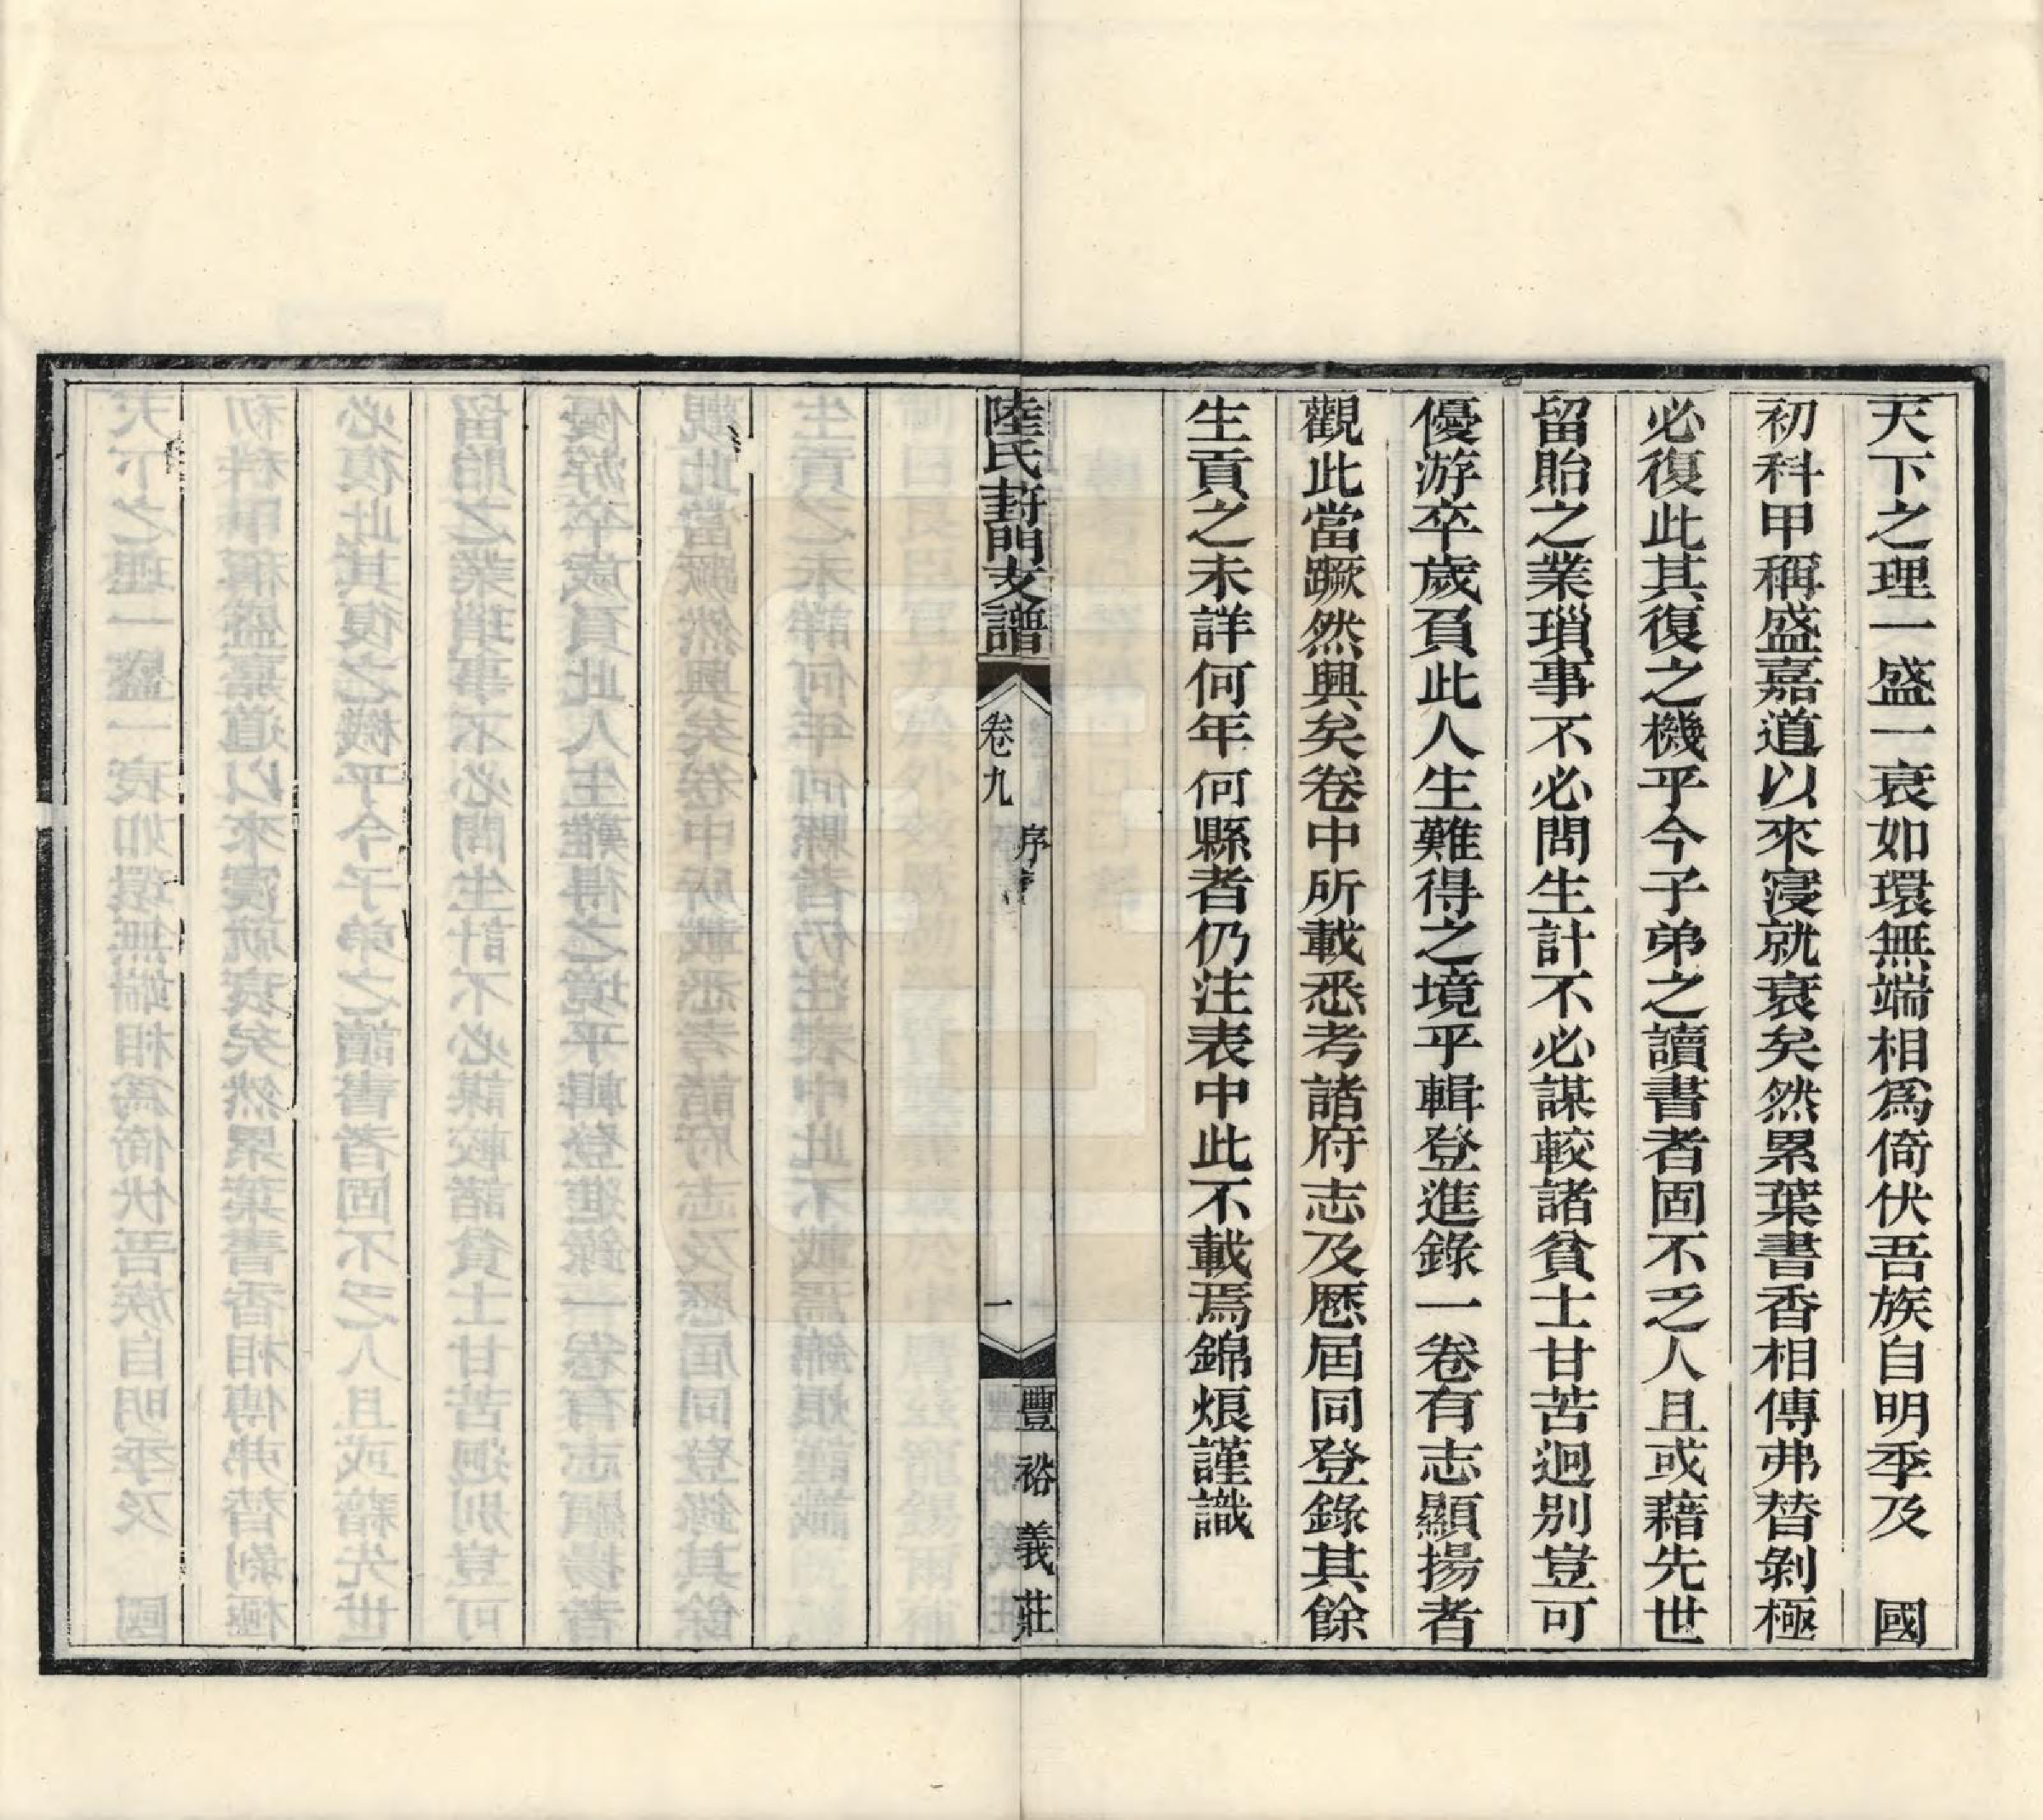 天下之理一盛一衰如環無端相爲倚伏吾族自明季及　國
初科甲稱盛嘉道以來寖就衰矣然累葉書香相傳弗替剝極
必復此其復之機乎今子弟之讀書者固不乏人且或藉先世
留貽之業瑣事不必問生計不必謀較諸貧士甘苦迥别豈可
優游卒歲負此人生難得之境乎輯登進錄一卷有志顯揚者
觀此當蹶然興矣卷中所載悉考諸府志及歷屆同登錄其餘
生貢之未詳何年何縣者仍注表中此不載焉錦烺謹識
陸氏葑門支譜
卷九
序
一
豐裕義莊